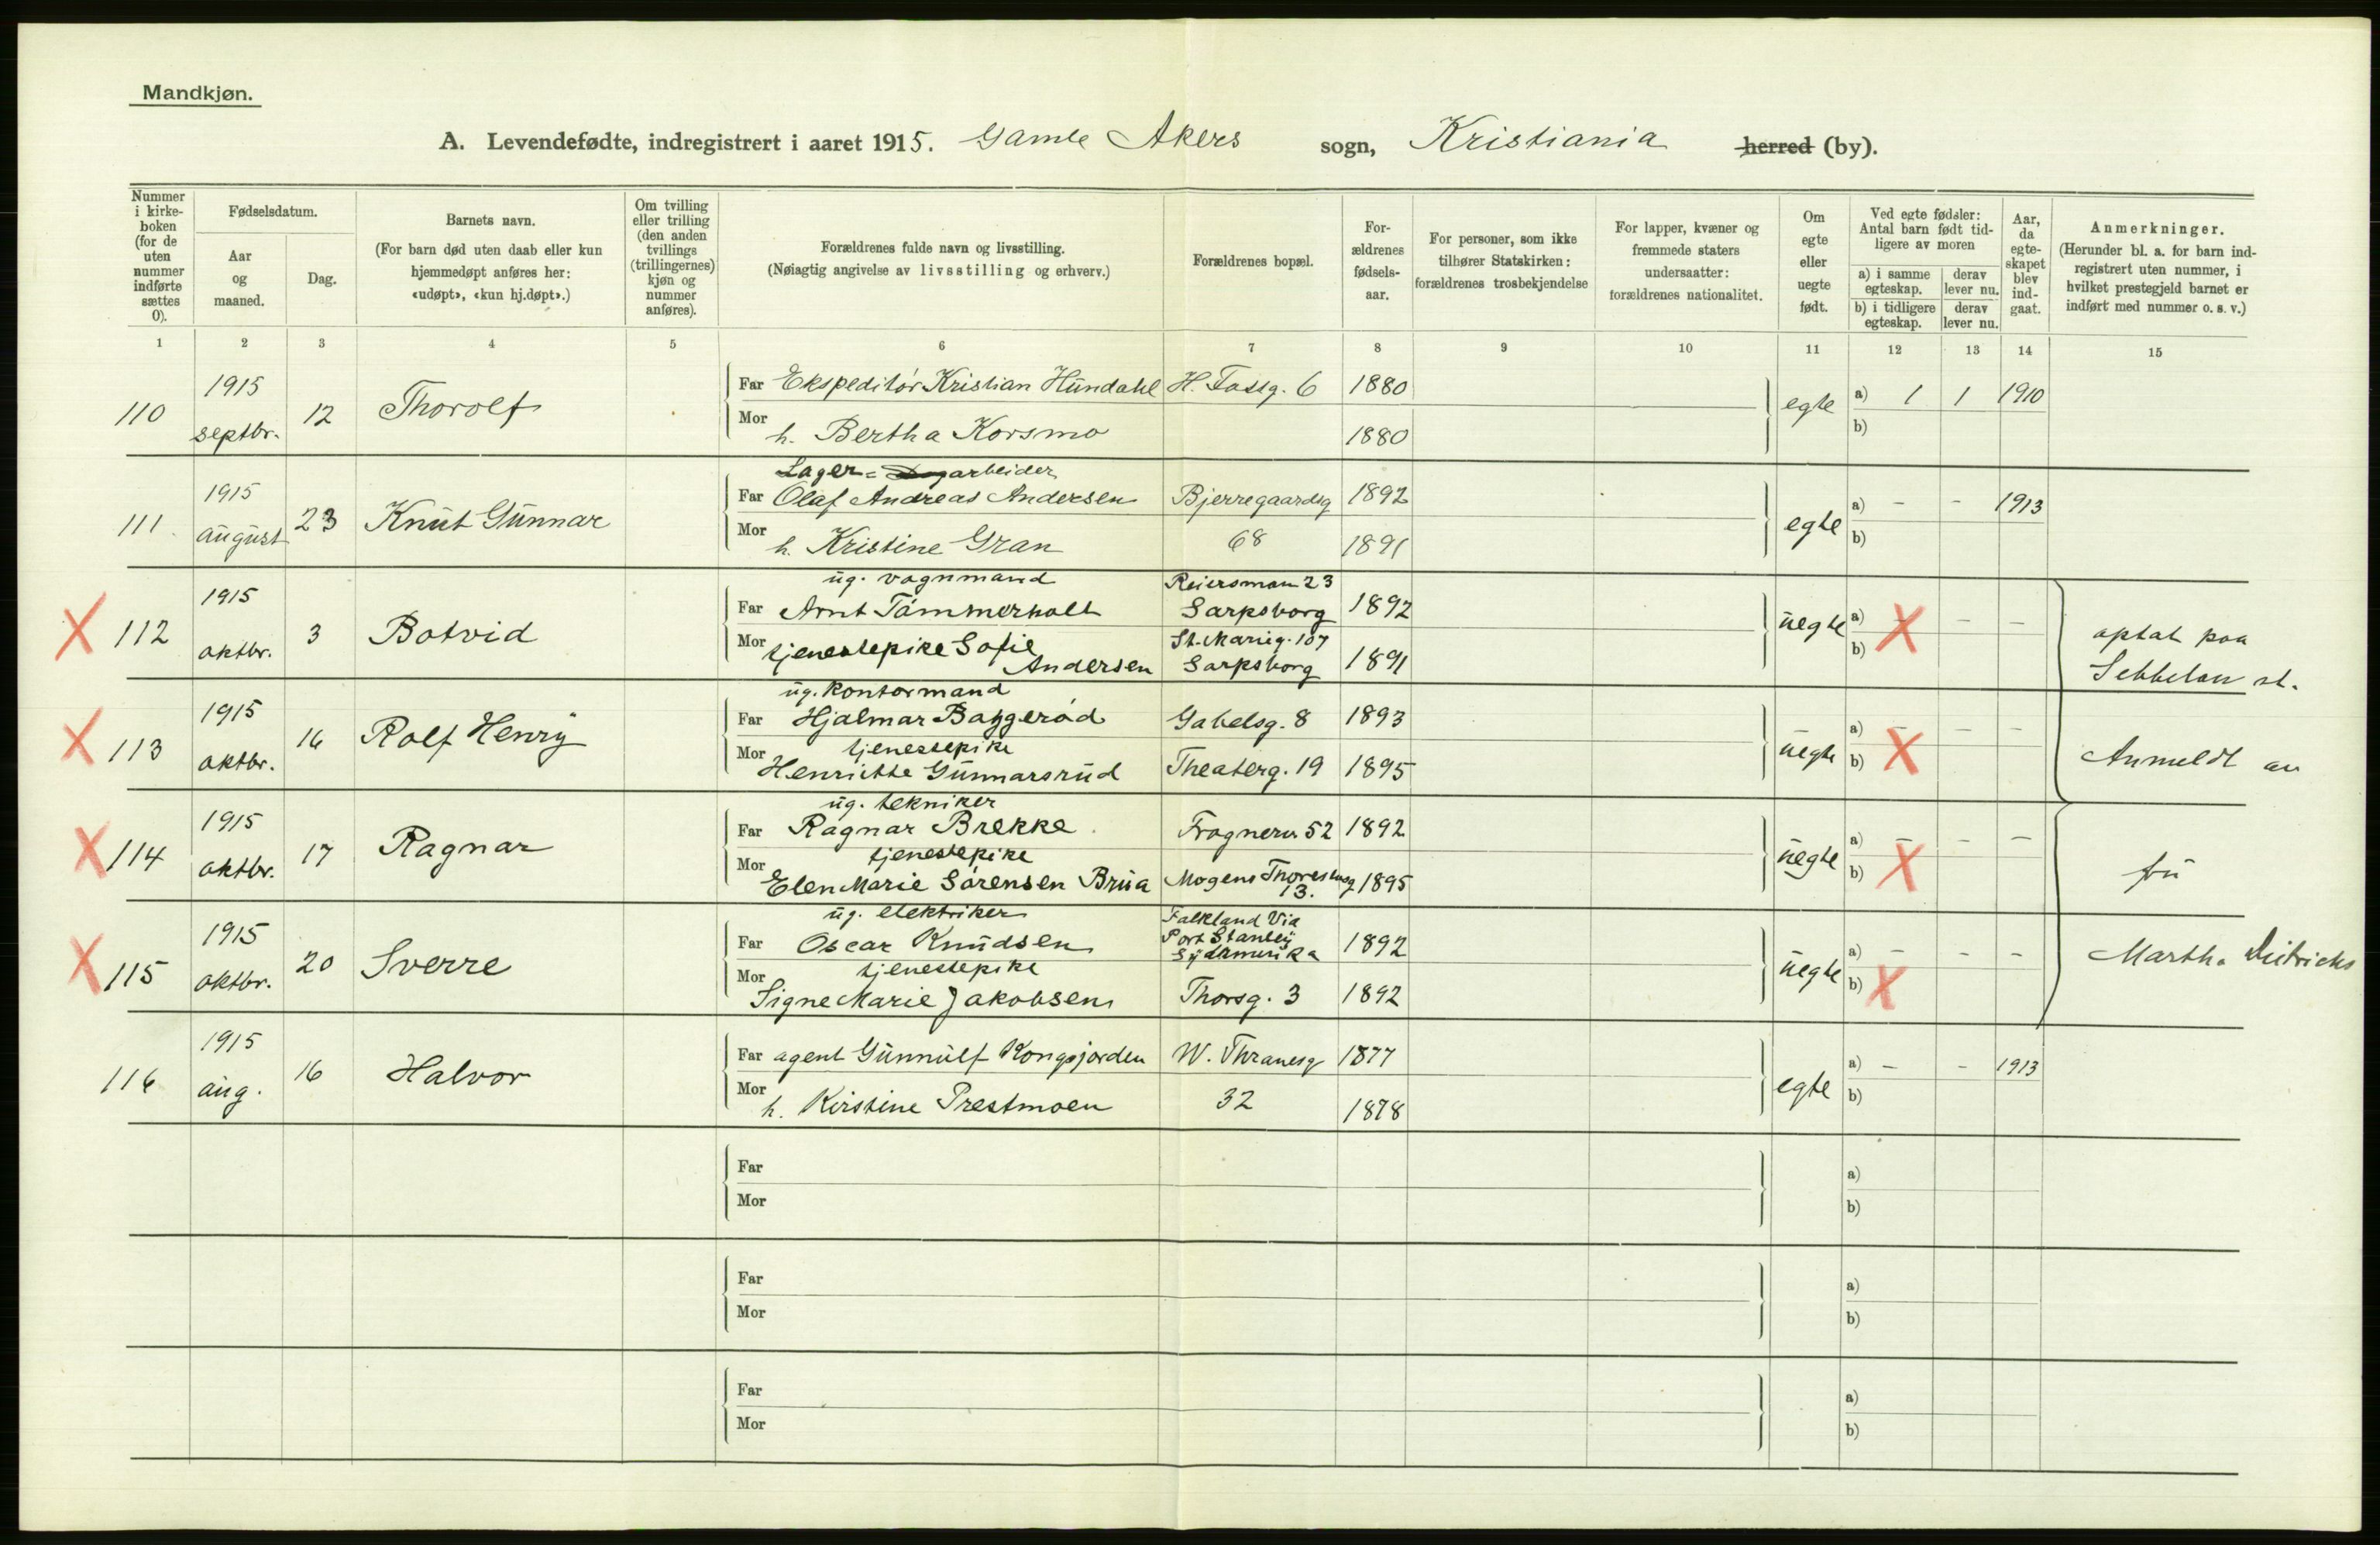 Mandkjøn.
A. Levendefødte, indregistrert i aaret 1915. Gamle Akers sogn, Kristiania herred (by).
Nummer i kirke-boken (for de uten nummer indførte sættes 0).
Fødselsdatum.
Aar og maaned.
Dag.
Barnets navn.
(For barn død uten daab eller kun hjemmedøpt anføres her: «udøpt», «kun hj.døpt».)
Om tvilling eller trilling (den anden tvillings (trillingernes) kjøn og nummer anføres).
Forældrenes fulde navn og livsstilling.
(Nøiagtig angivelse av livsstilling og erhverv.)
Forældrenes bopæl.
For-ældrenes fødsels-aar.
For personer, som ikke tilhører Statskirken: forældrenes trosbekjendelse
For lapper, kvæner og fremmede staters undersaatter: forældrenes nationalitet.
Om egte eller uegte født.
Ved egte fødsler: Antal barn født tid-ligere av moren
a) i samme egteskap.
derav lever nu.
b) i tidligere egteskap.
derav lever nu.
Aar, da egte-skapet blev ind-gaat.
Anmerkninger.
(Herunder bl. a. for barn ind-registrert uten nummer, i hvilket prestegjeld barnet er indført med nummer o. s. v.)
1 2 3 4 5 6 7 8 9 10 11 12 13 14 15
110 1915 septbr. 12 Thorolf
Far Ekspeditör Kristian Hundahl H. Fossg. 6 1880
Mor h. Bertha Korsmo 1880
egte a) 1 1 1910
b)
111 1915 august 23 Knut Gunnar
Lager- arbeider
Far Olaf Andreas Andersen Bjerregaardsg 1892
Mor h. Kristine Gran 68 1891
egte a) - - 1913
b)
X 112 1915 oktbr. 3 Botvid
ug. vognmand
Far Arnt Tömmerholt Sarpsborg 1892
Mor tjenestepike Sofie Andersen St. Marieg. 107 Sarpsborg 1891
uegte a) X - -
b)
optat paa
st.
X 113 1915 oktbr. 16 Rolf Henry
ug. kontormand
Far Hjalmar Baggeröd Gabelsg. 8 1893
Mor tjenestepike
Henriette Gunnarsrud Theaterg. 19 1895
uegte a) - - -
b) X
Anmeldt av
X 114 1915 oktbr. 17 Ragnar
ug. tekniker
Far Ragnar Brekke Frognerv 52 1892
Mor tjenestepike
Elen Marie Sörensen Brua Mogens Thoresensg 13. 1895
uegte a) - - -
b) X
fru
X 115 1915 oktbr. 20 Sverre
ug. elektriker
Far Oscar Knudsen Falkland Via Port Stanley Sydamerika 1892
Mor tjenestepike
Signe Marie Jakobsen Thorsg. 3 1892
uegte a) - - -
b) X
Martha Dietrichs
116 1915 aug. 16 Halvor
Far agent Gunnulf Kongsjorden W. Thranesg 1877
Mor h. Kirstine Prestmoen 32 1878
egte a) - - 1913
b)
Far a)
Mor b)
Far a)
Mor b)
Far a)
Mor b)